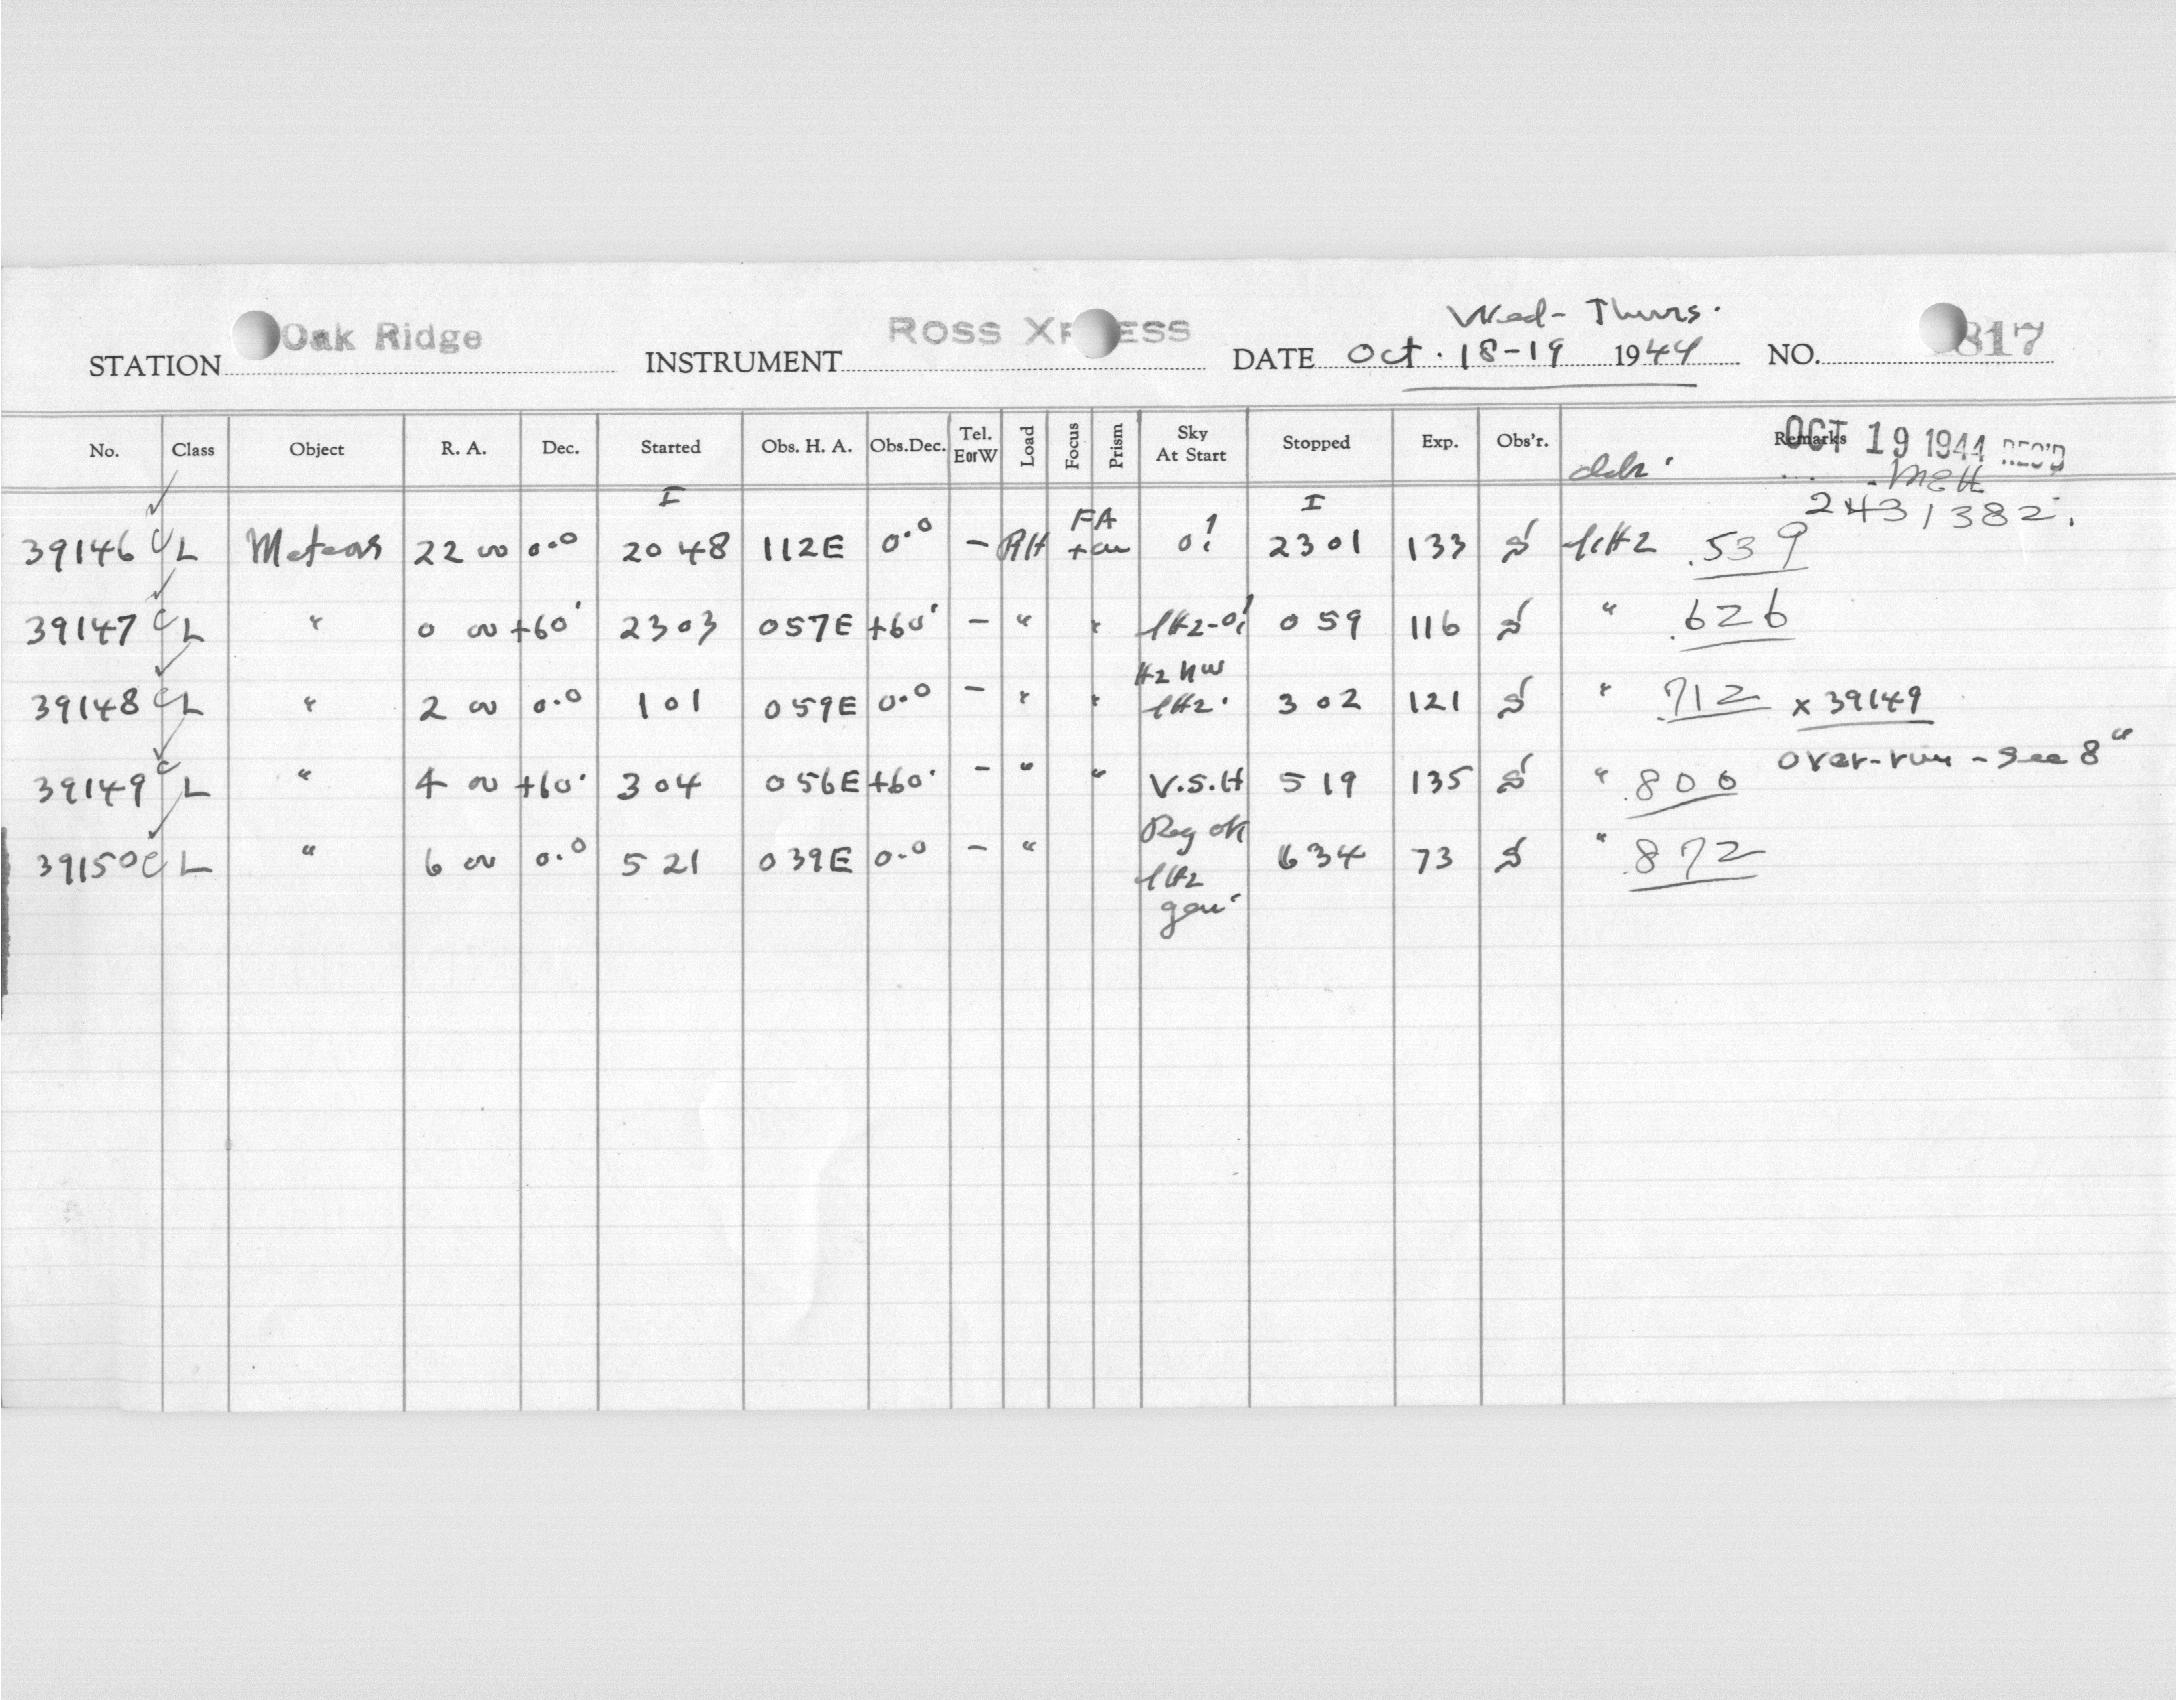 Wed- Thurs.
STATION Oak Ridge INSTRUMENT ROSS XPRESS DATE Oct. 18-19 1944 NO. 817
No. Class Object R. A. Dec. Started Obs. H. A. Obs.Dec. Tel. EorW Load Focus Prism Sky At Start Stopped Exp. Obs'r. Remarks
OCT 19 1944 REC'D
MEH
I I 2431382.
39146 C L Meteors 22 00 0.0 2048 112E 0.0 - RH FA 0! 2301 133 .539
39147 C L " 0 00 +60 2303 057E +60 - " " 059 116 " .626
39148 C L " 2 00 0.0 101 059E 0.0 - " " Hz NW 302 121 " .712 x 39149
over-run - see 8"
39149 C L " 4 00 +60 304 056E +60 - " " V.S.H 519 135 " .800
39150 C L " 6 00 0.0 521 039E 0.0 - " Reg ok 634 73 " .872